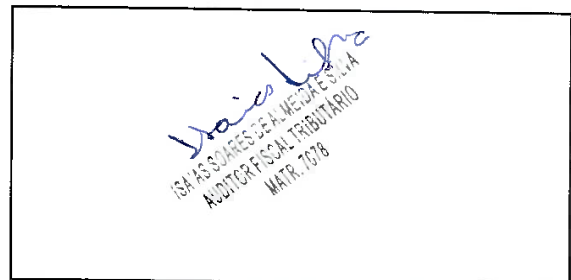 Isaias Silva
ISAIAS SOARES DE ALMEIDA E SILVA
AUDITOR FISCAL TRIBUTÁRIO
MATR. 7678